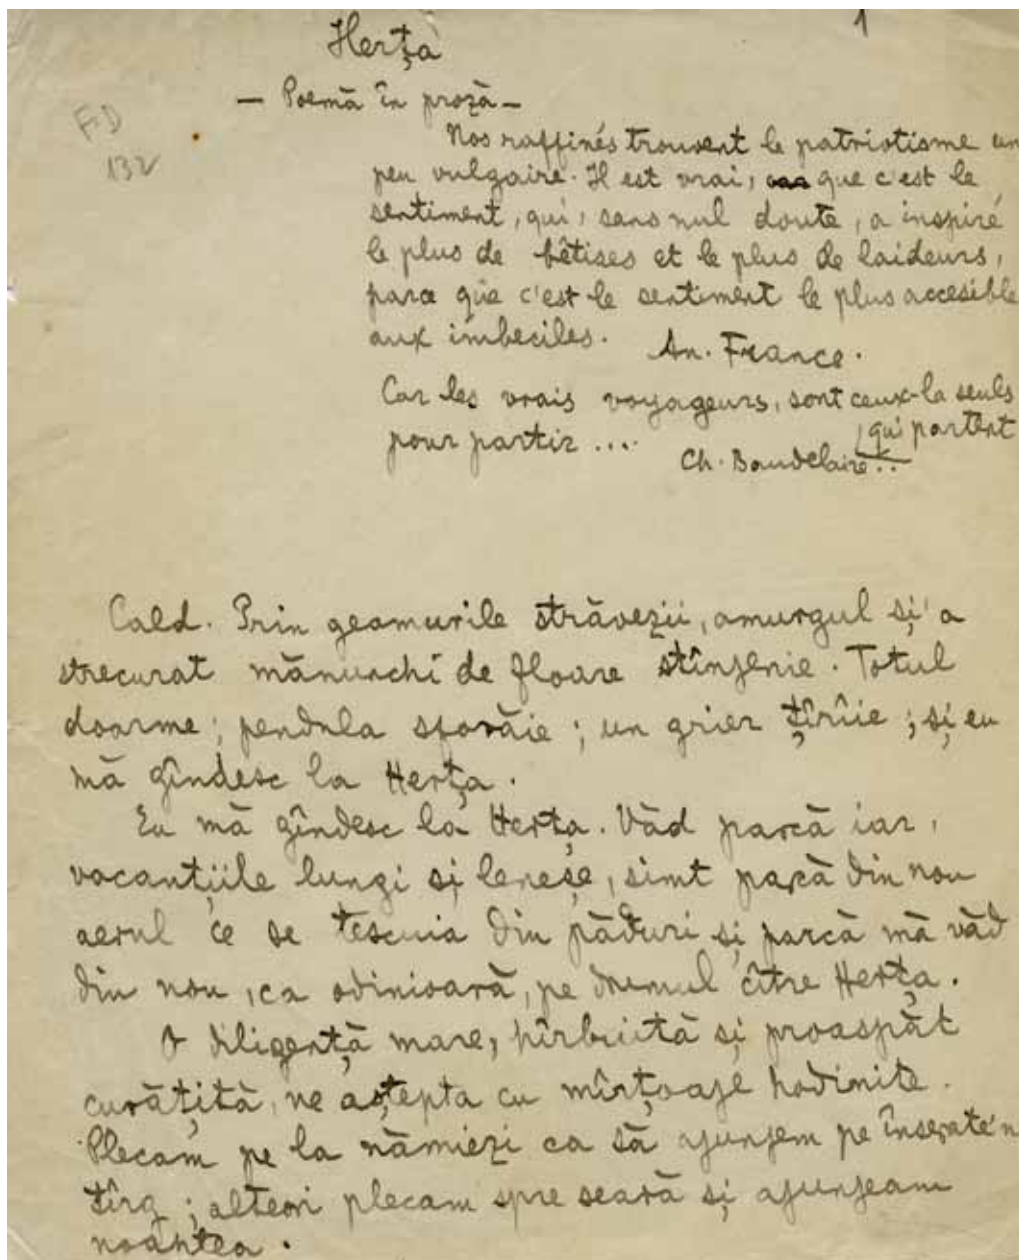 1
Herța
— Poemă în proză —
F.D
132
Nos raffinés trouvent le patriotisme un
peu vulgaire. Il est vrai, que c'est le
sentiment, qui, sans nul doute, a inspiré
le plus de bêtises et le plus de laideurs,
parce que c'est le sentiment le plus accesible
aux imbeciles. An. France.
Car les vrais voyageurs, sont ceux-la seuls
qui partent
pour partir ....
Ch. Baudelaire..
Cald. Prin geamurile străvezii, amurgul și'a
strecurat mănunchi de floare stînjenie. Totul
doarme; pendula sforăie; un grier țîrîie; și eu
mă gîndesc la Herța.
Eu mă gîndesc la Herța. Văd parcă iar,
vacanțiile lungi și leneșe, simt parcă din nou
aerul ce se tescuia din păduri și parcă mă văd
din nou, ca odinioară, pe drumul cître Herța.
O diligență mare, hîrbuită și proaspăt
curățită, ne aștepta cu mîrțoaje hodinite.
Plecam pe la nămiezi ca să ajunjem pe înserate'n
tîrg; alteori plecam spre seară și ajunjeam
noaptea.